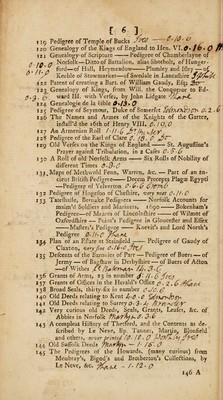 [ 6 ]
119 Pedigree of Temple of Bucks
120 Genealogy of the Kings of England to Hen. VI. 0.16.0
121 Genealogy of Scripture — Pedigree of Chamberlayne of
Norfolk—Ditto of Battalion, alias Shotbolt, of Hunger-
ford—of Hall, Heymondham—Plumley and Hoy—of
Kneble of Stowmarket—of Swedale in Lancashire
122 Patent of creating a Bart. of William Gaudy, Esq;
123 Genealogy of Kings, from Will. the Conqueror to Ed-
ward III. with Verses, by John Lidgate
124 Genealogie de la bible 0.13.0
125 Pedigree of Seymour, Duke of Somerset 0.2.6
126 The Names and Armes of the Knights of the Garter,
install'd the 16th of Henry VIII.
127 An Armorial Roll
128 Pedigree of the Earl of Clare
129 Old Verses on the Kings of England — St. Augustine's
Prayer against Tribulation, in a Case
130 A Roll of old Norfolk Arms — Six Rolls of Nobility of
different Times
131 Maps of Methwold Fenn, Warren, &c. — Part of an an-
cient British Pedigree—Decem Precepta Plagæ Egypti
—Pedigree of Yelverton 0.6.6
132 Pedigree of Hogeson of Cheshire, very rare 0.11.0
133 Tatershalle, Broucke Pedigrees — Norfolk Accounts for
maim'd Soldiers and Mariners, 1690 — Bokenham's
Pedigree—of Mearns of Lincolnshire —of Wilmot of
Oxfordshire — Point's Pedigree in Glocester and Essex
— Masters's Pedigree — Knevit's and Lord North's
Pedigree
134 Plan of an Estate at Stainfeild — Pedigree of Gaudy of
Claxton, very fair
135 Descents of the Baronies of Parr — Pedigree of Boers—of
Jermy — of Bagshaw in Derbyshire — of Boers of Acton
—of Wither
136 Grants of Arms, 23 in number
137 Grants of Offices in the Herald's Office
138 Broad Seals, thirty six in number
140 Old Deeds relating to Kent
141 Old Deeds relating to Surry
142 Very curious old Deeds, Seals, Grants, Leases, &c. of
Abbies in Norfolk
143 A compleat History of Thetford, and the Contents as de-
scribed by Le Neve, Bp. Tanner, Martin, Blomfield
and others, never printed
144 Old Suffolk Deeds
145 The Pedigrees of the Howards, (many curious) from
Mowbray's, Bigod's and Brotherton's Collections, by
Le Neve, &c.
146 A